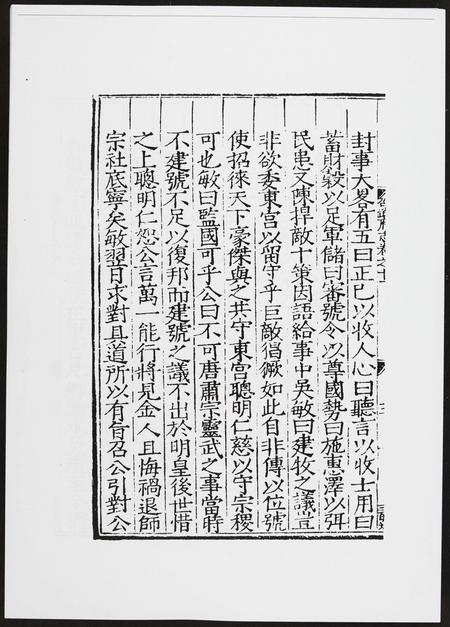 封事大畧有五曰正已以收人心曰聽言以收士用曰
蓄財穀以足軍儲曰審號令以尊國勢曰施惠澤以弭
民患又陳捍敵十策因語給事中吳敏曰建牧之議豈
非欲委東宫以留守乎巨敵猖獗如此自非傳以位號
使招徠天下豪傑與之共守東宫聰明仁慈以守宗稷
可也敏曰監國可乎公曰不可唐肅宗靈武之事當時
不建號不足以復邦而建號之議不出於明皇後世惜
之上聰明仁恕公言萬一能行將見金人且悔禍退師
宗社底寧矣敏翌日求對具道所以有旨召公引對公